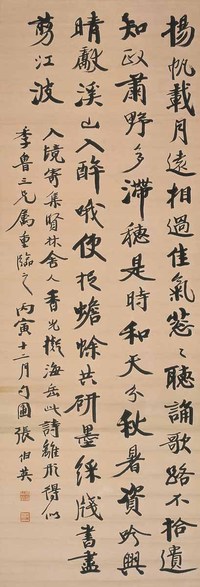 揚帆載月遠相過佳氣葱〻聽誦歌路不拾遺
知政肅野多滯穗是時和天分秋暑資吟興
晴獻溪山入醉哦便捉蟾蜍共研墨綵牋書盡
剪江波
入境寄集賢林舍人 香光擬海岳此詩雖形得似
季魯三兄属重臨之 丙寅十二月勺圃張伯英